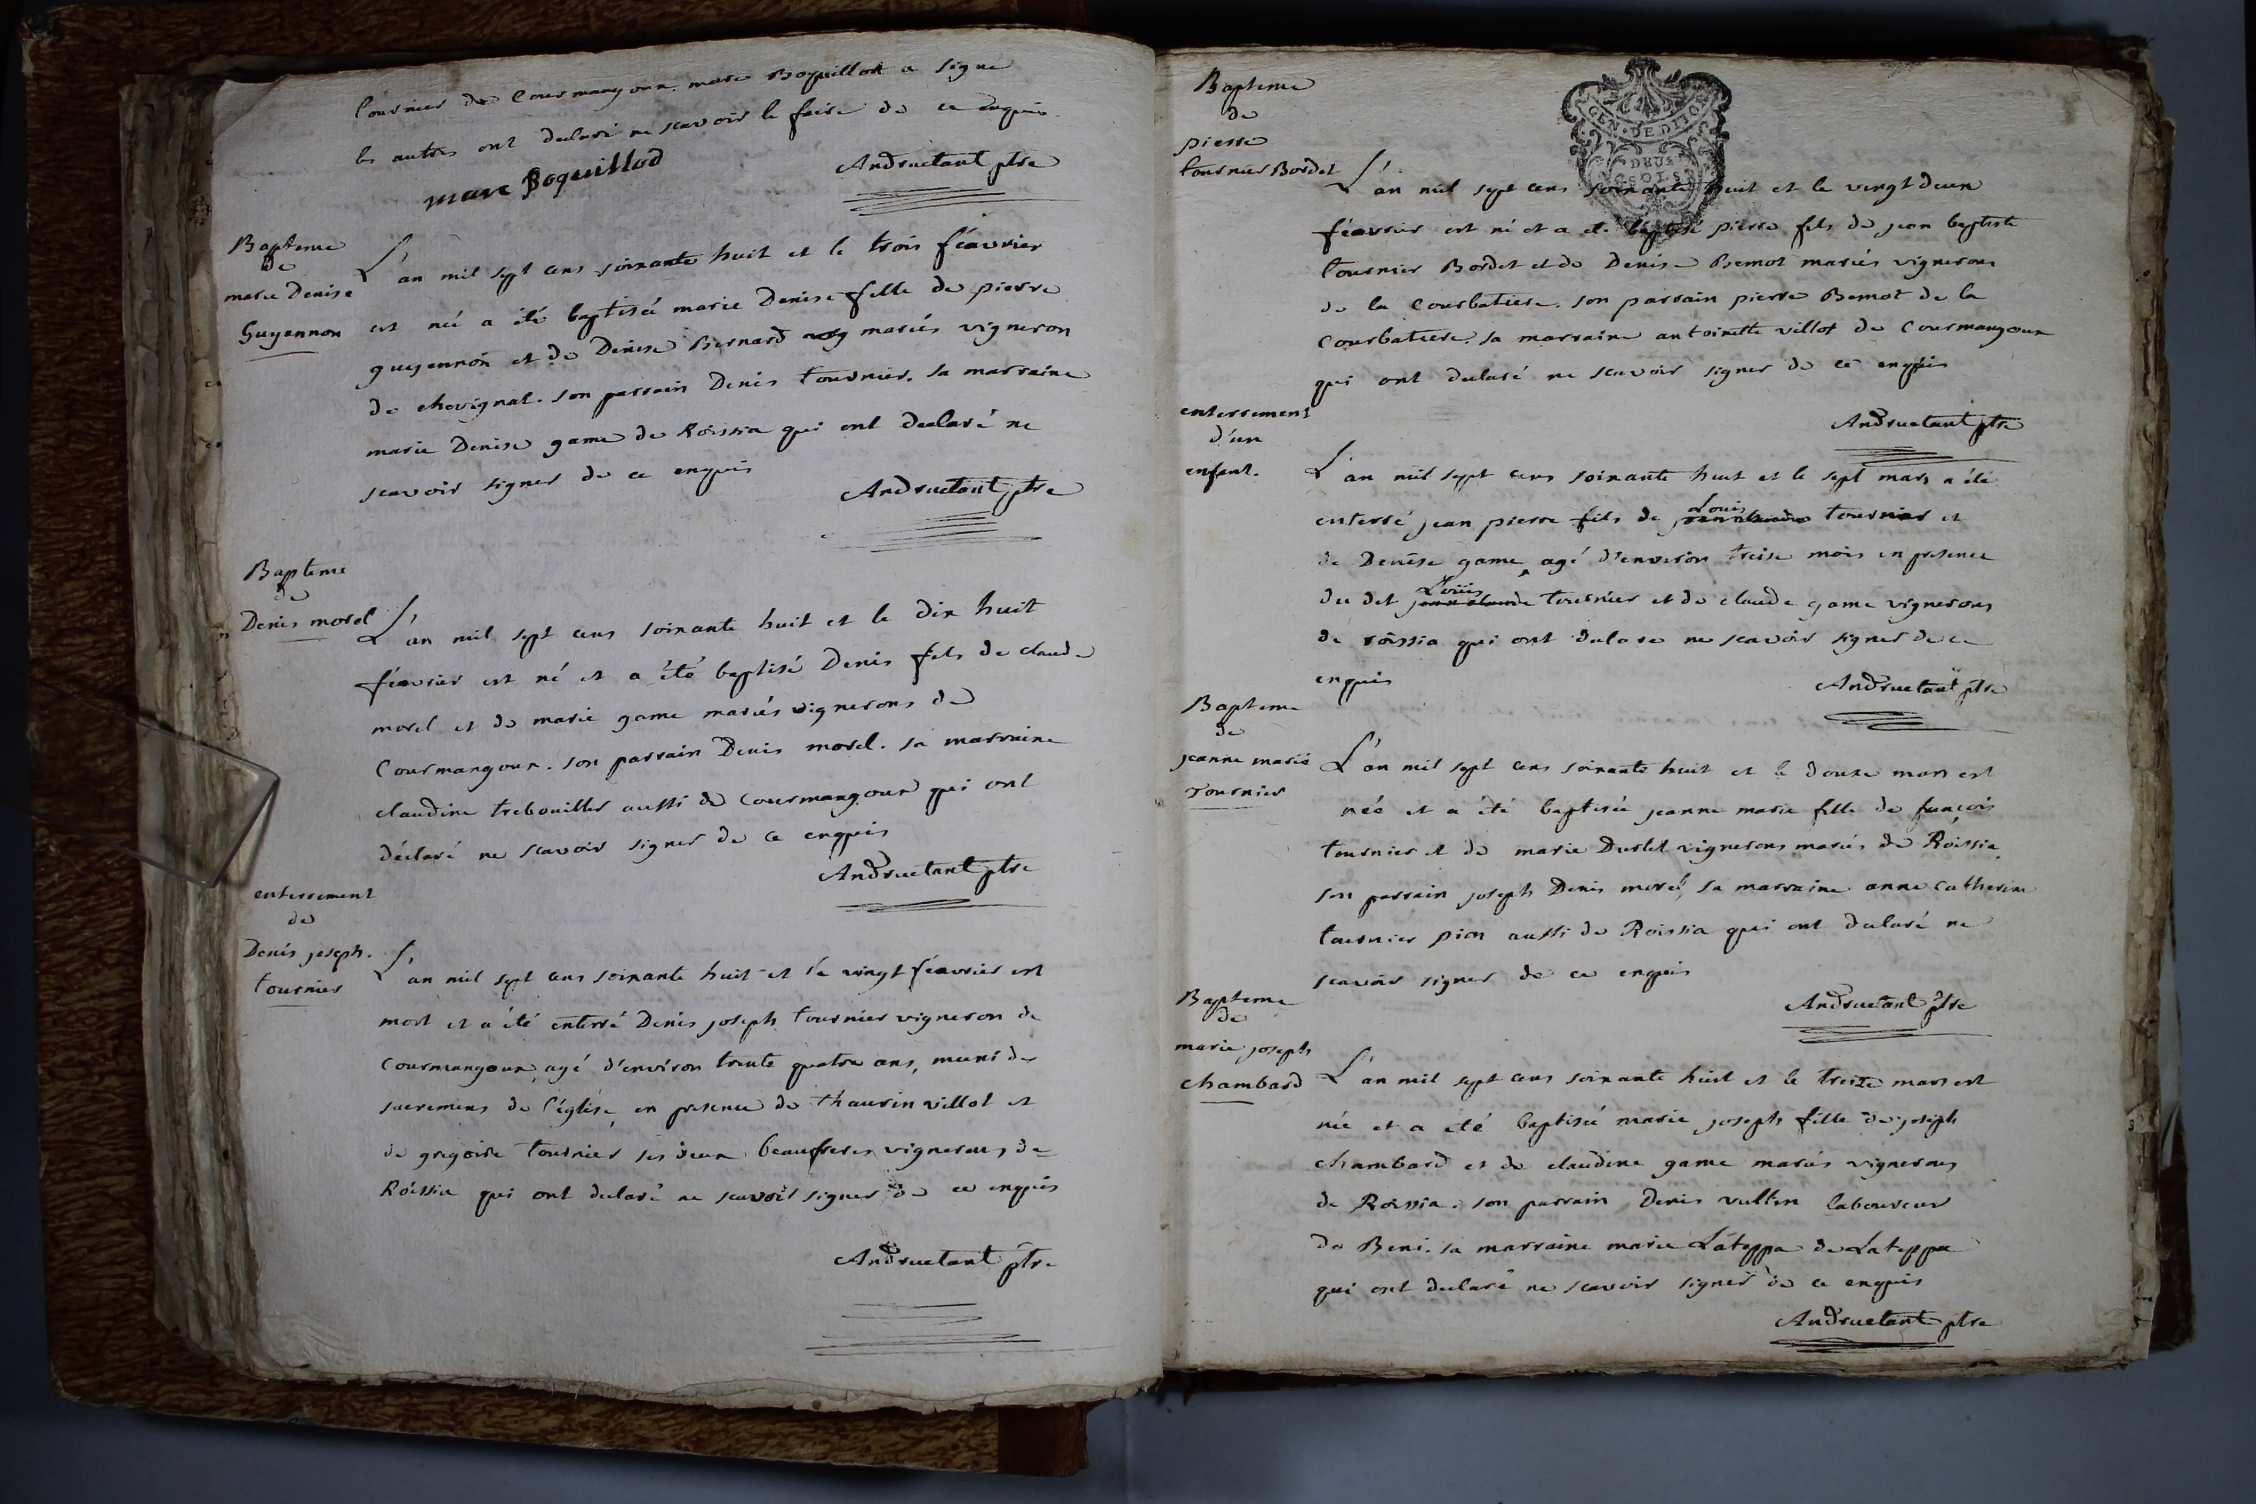 tournier de Courmangoux. marc Boquillod a signé
les autres ont declaré ne scavoir le faire de ce enquis
marc Boquillod
Andruetant ptre
Bapteme
de
marie Denise
Guyennon
L'an mil sept cens soixante huit et le trois féavrier
est née a été baptisée marie Denise fille de pierre
guyennon et de Denise Bernard mariés vigneron
de chevignat. son parrain Denis tournier. sa marraine
marie Denise game de Roissia qui ont declaré ne
scavoir signer de ce enquis
Andruetant ptre
Bapteme
de
Denis morel
L'an mil sept cens soixante huit et le dix huit
féavrier est né et a été baptisé Denis fils de claude
morel et de marie game mariés vignerons de
Courmangoux. son parrain Denis morel. sa marraine
claudine trebouillet aussi de Courmangoux qui ont
déclaré ne scavoir signer de ce enquis
Andruetant ptre
enterrement
de
Denis joseph.
tournier
L'an mil sept cens soixante huit et le vingt féavrier est
mort et a été enterré Denis joseph tournier vigneron de
Courmangoux, agé d'environ trente quatre ans, muni des
sacremens de l'église, en presence de thaurin villot et
de gregoire tournier ses deux beaufreres vignerons de
Roissia qui ont declaré ne scavoir signer de ce enquis
Andruetant ptre
Bapteme
de
pierre
tournier Bordet
GEN · DE DIJON
L'an mil sept cens soixante huit et le vingt deux
féavrier est né et a eté baptisé pierre fils de jean baptiste
tournier Bordet et de Denise Bemot mariés vignerons
de la Courbatiere. son parrain pierre Bemot de la
Courbatiere. sa marraine antoinette villot de Courmangoux
qui ont declaré ne scavoir signer de ce enquis
Andruetant ptre
enterrement
d'un
enfant.
L'an mil sept cens soixante huit et le sept mars a été
enterré jean pierre fils de Louis tournier et
de Denise game, agé d'environ treise mois en presence
du dit Louis tournier et de claude game vignerons
de roissia qui ont declare ne scavoir signer de ce
enquis
Andruetant ptre
Bapteme
de
jeanne marie
Tournier
L'an mil sept cens soixante huit et le douze mars est
née et a été baptisée jeanne marie fille de françois
tournier et de marie Durlet vignerons mariés de Roissia.
son parrain joseph Denis morel, sa marraine anne catherine
tournier pion aussi de Roissia qui ont declaré ne
scavoir signer de ce enquis
Andruetant ptre
Bapteme
de
marie joseph
chambard
L'an mil sept cens soixante huit et le treize mars est
née et a été baptisée marie joseph fille de joseph
chambard et de claudine game mariés vignerons
de Roissia. son parrain Denis vullin laboureur
de Beni. sa marraine marie Lateppa de Lateppa
qui ont declaré ne scavoir signer de ce enquis
Andruetant ptre